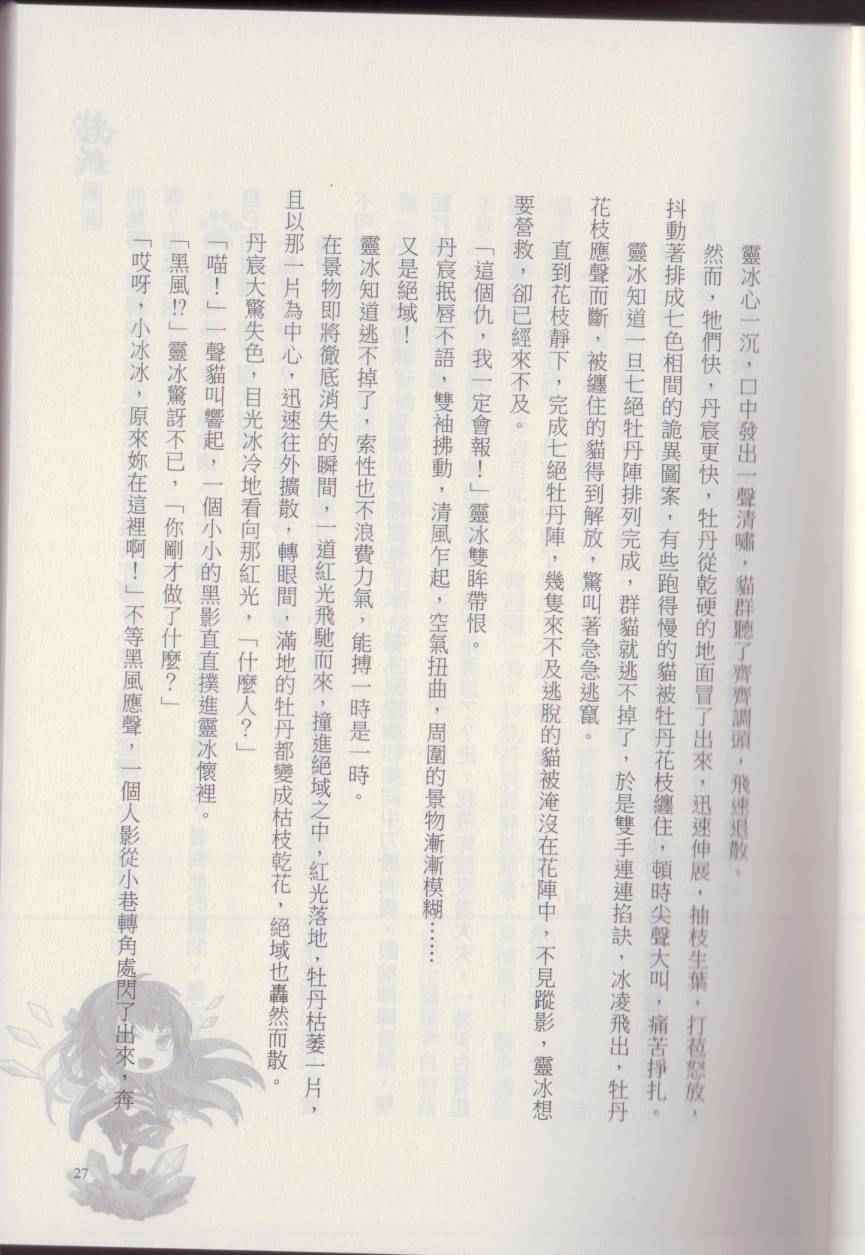 靈冰心一沉，口中發出一聲清嘯，貓群聽了齊齊調頭，飛速退散。
然而，牠們快，丹宸更快，牡丹從乾硬的地面冒了出來，迅速伸展，抽枝生葉，打苞怒放，
抖動著排成七色相間的詭異圖案，有些跑得慢的貓被牡丹花枝纏住，頓時尖聲大叫，痛苦掙扎。
靈冰知道一旦七絕牡丹陣排列完成，群貓就逃不掉了，於是雙手連連掐訣，冰凌飛出，牡丹
花枝應聲而斷，被纏住的貓得到解放，驚叫著急急逃竄。
直到花枝靜下，完成七絕牡丹陣，幾隻來不及逃脫的貓被淹沒在花陣中，不見蹤影，靈冰想
要營救，卻已經來不及。
「這個仇，我一定會報！」靈冰雙眸帶恨。
丹宸抿唇不語，雙袖拂動，清風乍起，空氣扭曲，周圍的景物漸漸模糊……
又是絕域！
靈冰知道逃不掉了，索性也不浪費力氣，能搏一時是一時。
在景物即將徹底消失的瞬間，一道紅光飛馳而來，撞進絕域之中，紅光落地，牡丹枯萎一片，
且以那一片為中心，迅速往外擴散，轉眼間，滿地的牡丹都變成枯枝乾花，絕域也轟然而散。
丹宸大驚失色，目光冰冷地看向那紅光，「什麼人？」
「喵！」一聲貓叫響起，一個小小的黑影直直撲進靈冰懷裡。
「黑風!?」靈冰驚訝不已，「你剛才做了什麼？」
「哎呀，小冰冰，原來妳在這裡啊！」不等黑風應聲，一個人影從小巷轉角處閃了出來，奔
27